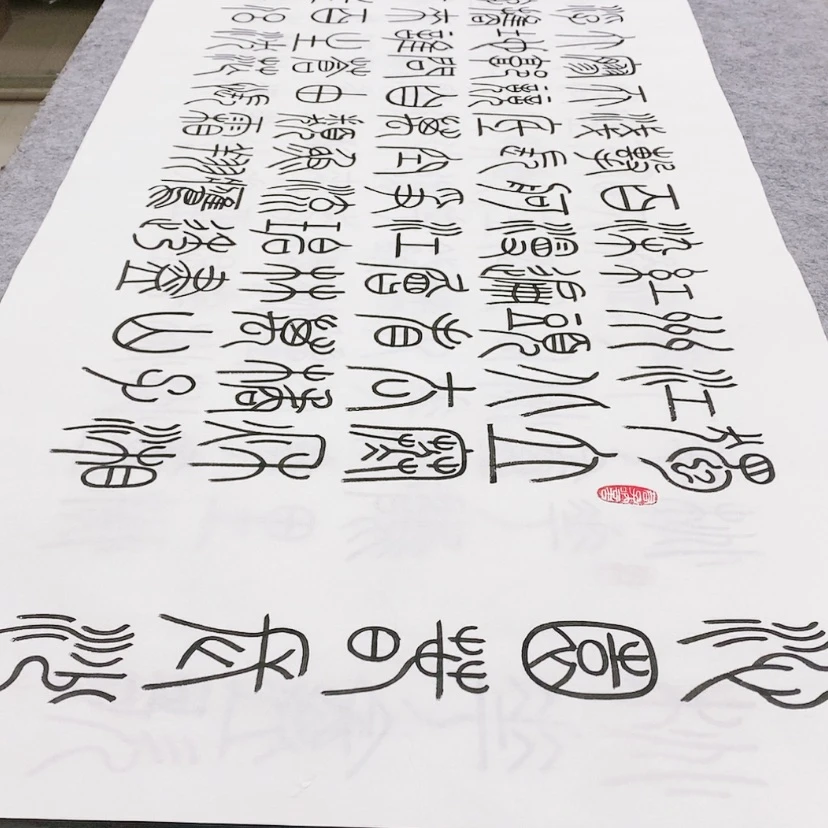 沁園春長沙
獨立寒秋湘
江北去橘子
洲頭看萬山
紅遍層林盡
染漫江碧透
百舸爭流鷹
擊長空魚翔
淺底萬類霜
天競自由悵
寥廓問蒼茫
大地誰主沉
浮攜來百侶